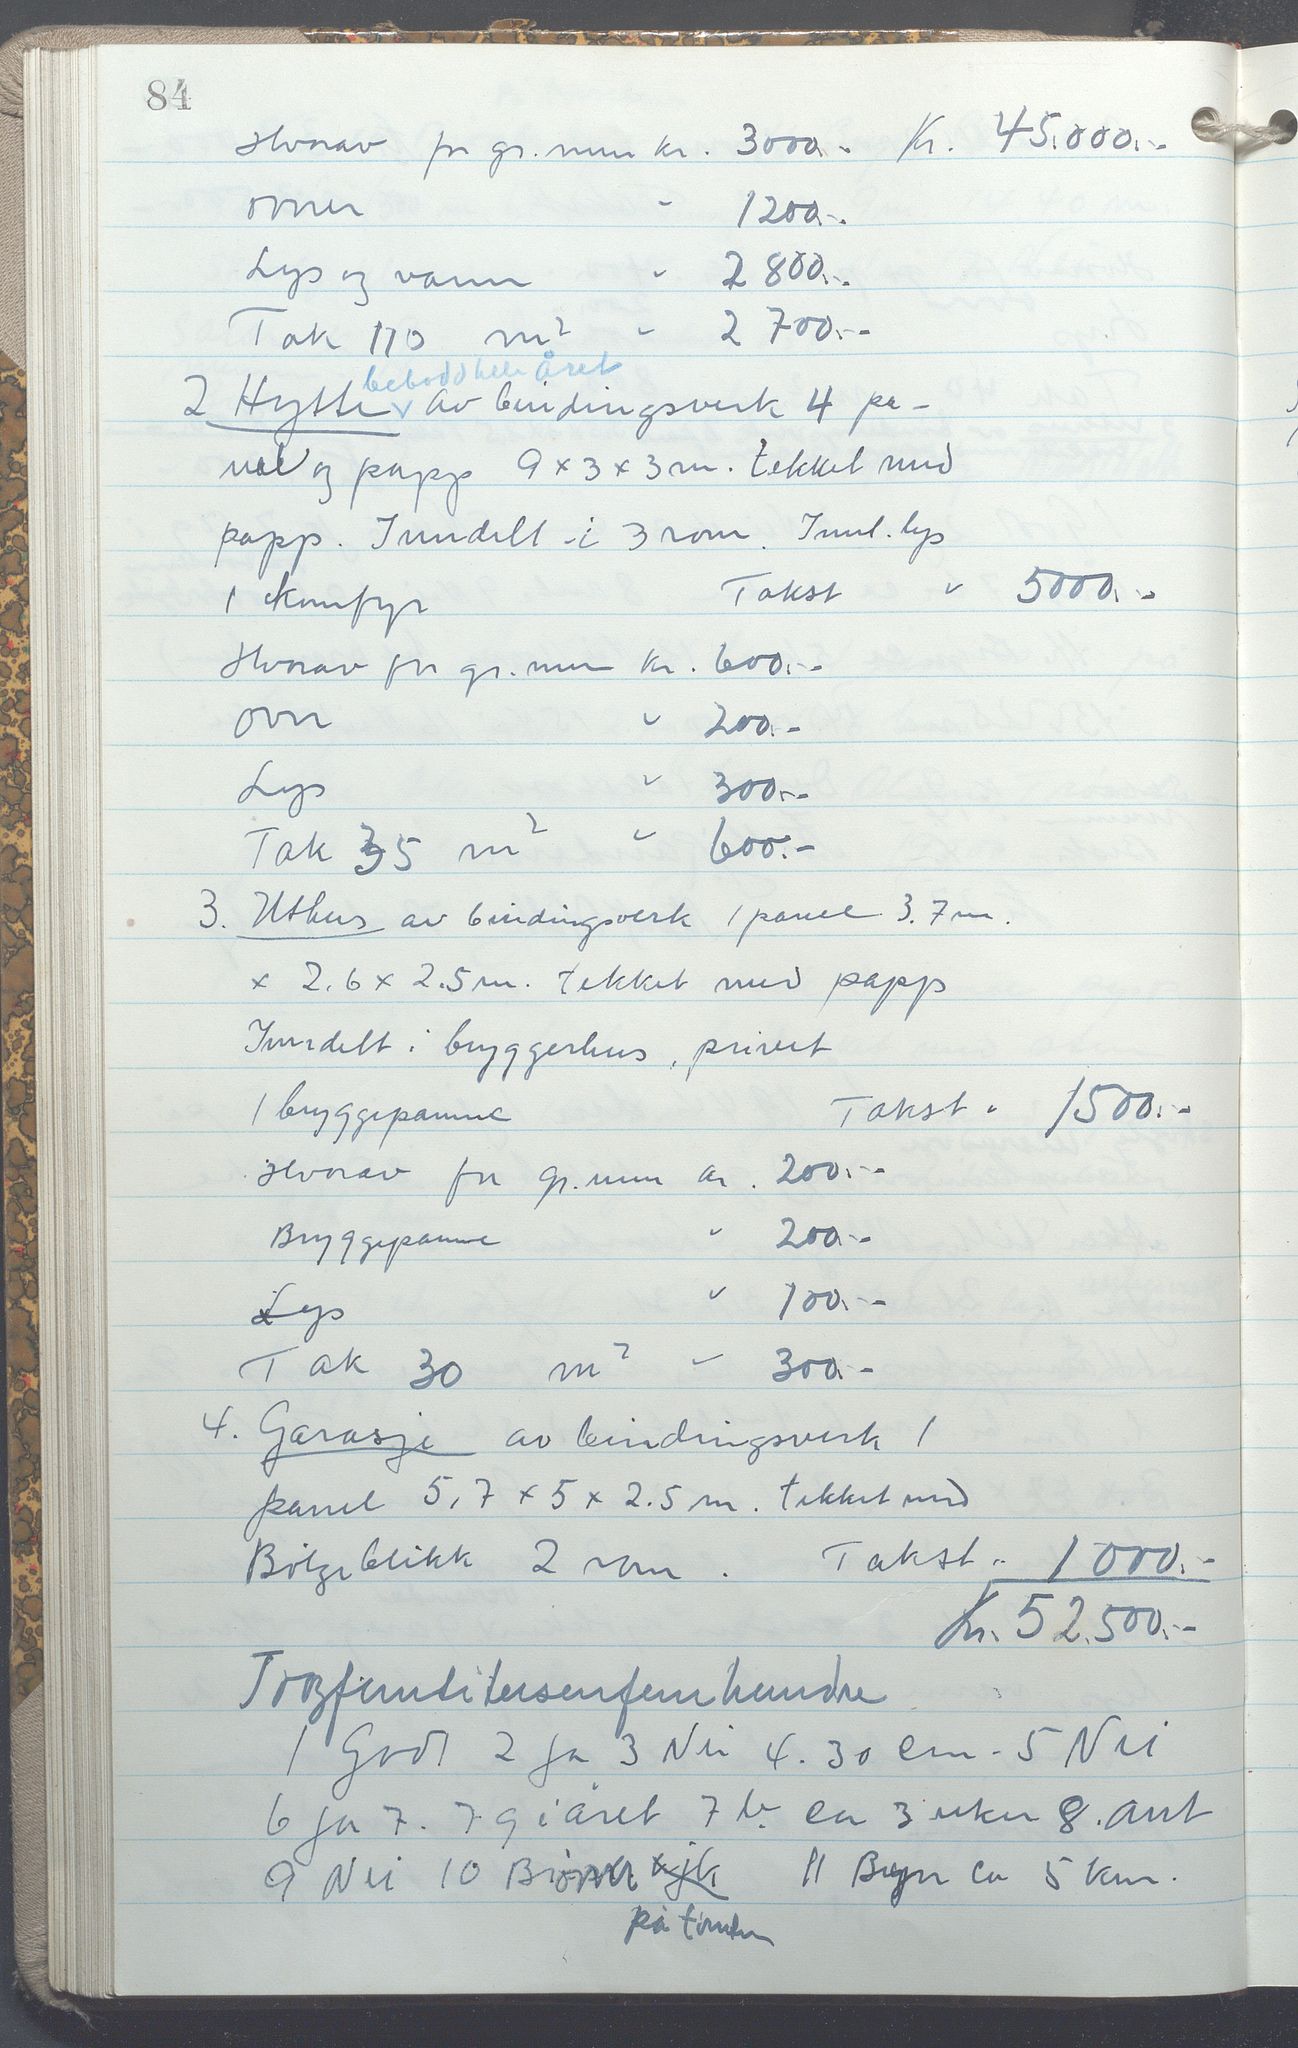 84
Hvorav for gr. mur kr. 3000.- Kr. 45.000.-
ovner " 1200.-
Lys og vann " 2 800.-
Tak 110 m² " 2 700.-
bebodd hele året
2 Hytte av bindingsverk 4 pa-
nel og papp 9 x 3 x 3 m. tekket med
papp. Inndelt i 3 rom. Innl. lys
1 komfyr Takst " 5000.-
Hvorav for gr. mur kr. 600.-
ovn " 200.-
Lys " 300.-
Tak 35 m² " 600.-
3. Uthus av bindingsverk 1 panel 3.7 m.
x 2.6 x 2.5 m. tekket med papp
Inndelt i bryggerhus, privet
1 bryggepanne Takst " 1500.-
Hvorav for gr. mur kr. 200.-
Bryggepanne " 200.-
Lys " 100.-
Tak 30 m² " 300.-
4. Garasje av bindingsverk 1
panel 5,7 x 5 x 2.5 m. tekket med
Bölgeblikk 2 rom. Takst " 1000.-
Kr. 52.500.-
Tooghfemtitusenfemhundre
1 Godt 2 ja 3 Nei 4. 30 cm - 5 Nei
6 ja 7. 7 g i året 7 b. ca 3 uker 8. ant
9 Nei 10 Brönn 11 Byen ca 5 km.
på tomten